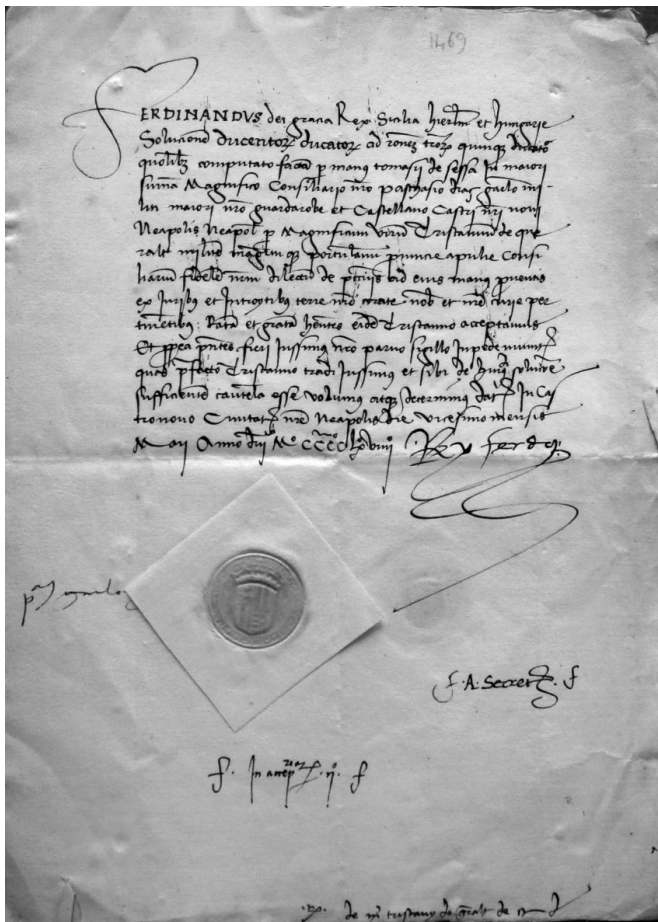 1469
FERDINANDVS dei gracia Rex Sicilie hierlm et hungarie
Solucione ducentorz ducatorz ad ronez trorz quinqz ducato
quolibz computato factā p manus tomasii de sessa In maiori
summa Magnifico Consiliario nro paschasio diaz garlo mi-
liti maiori nro guardarobe et Castellano Castri nri noui
Neapolis Neapol p Magnificum virum Tristannum de que
ralt militem portulanum prouincie aprucie Consi
liarium fidelem nrm dilectū de pecuniis ad eius manus puentis
ex Iuribus et Introytibus terre nob et nre curie per
tinetibus Rata et grata hentes eidē Tristanno acceptamus
Et pptea pntes fieri Iussimus nro paruo sigillo Inpede munitas
quas pfecto Tristanno tradi Iussimus et sibi de solucoe
sufficientē cautela esse volumus atqz decernimus dat In Cas
tronouo Ciuitat nre Neapolis die vicesimo mensis
Maii Anno dni Mo CCCCo lxviiii Rex ferdus
f. A. Secret. f
f. In accep. ij. f
de tristany de qralt de